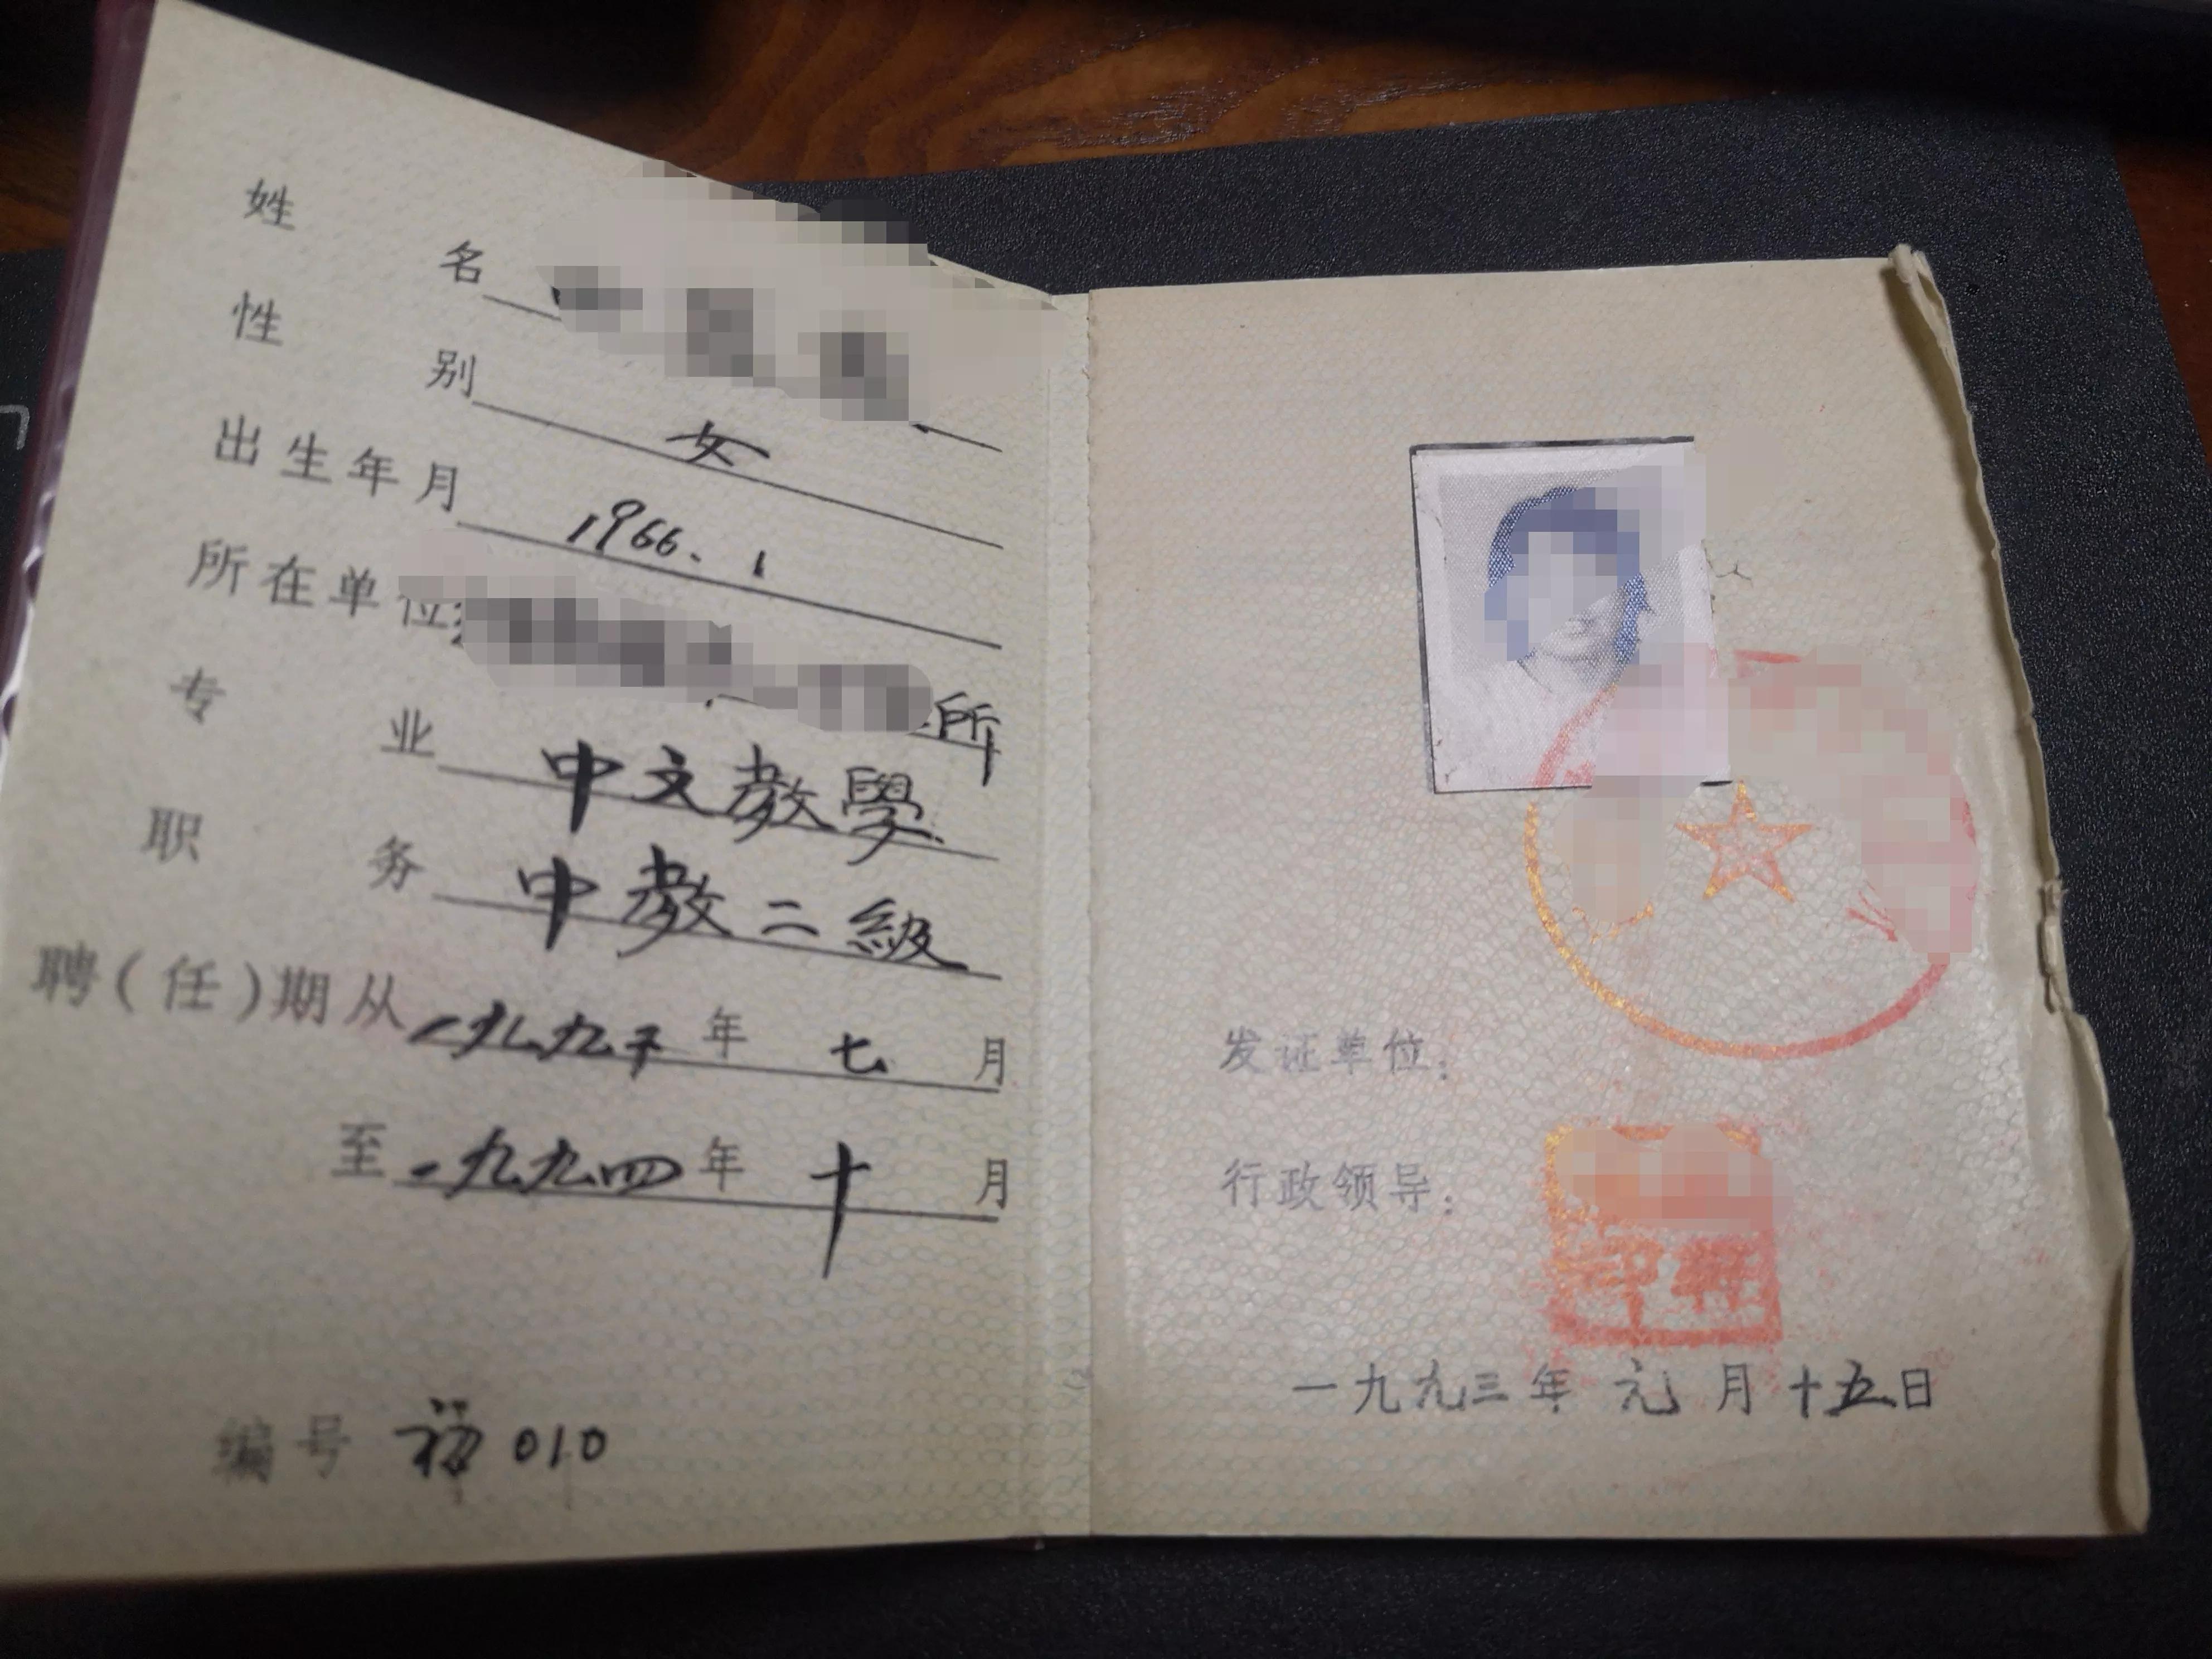 姓名
性别 女
出生年月 1966.1
所在单位 所
专业 中文教學
职务 中教二級
聘(任)期从 一九九 年 七 月
至 一九九四 年 十 月
编号 010
发证单位:
行政领导:
一九九三年 元 月 十五日